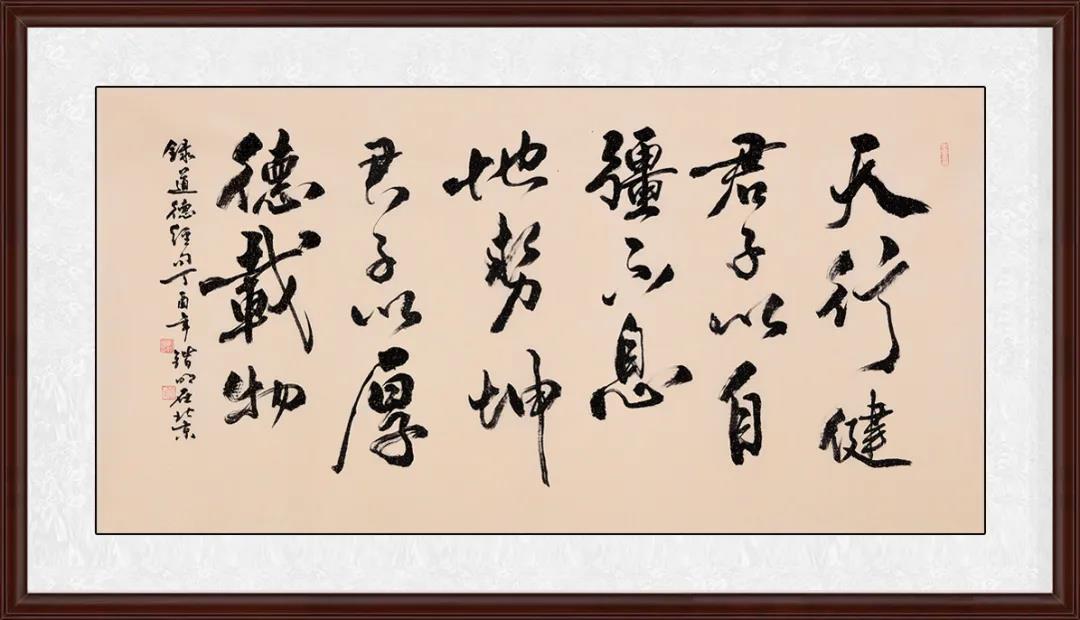 天行健
君子以自
彊不息
地勢坤
君子以厚
德載物
錄道德經句丁酉年锴明在北京